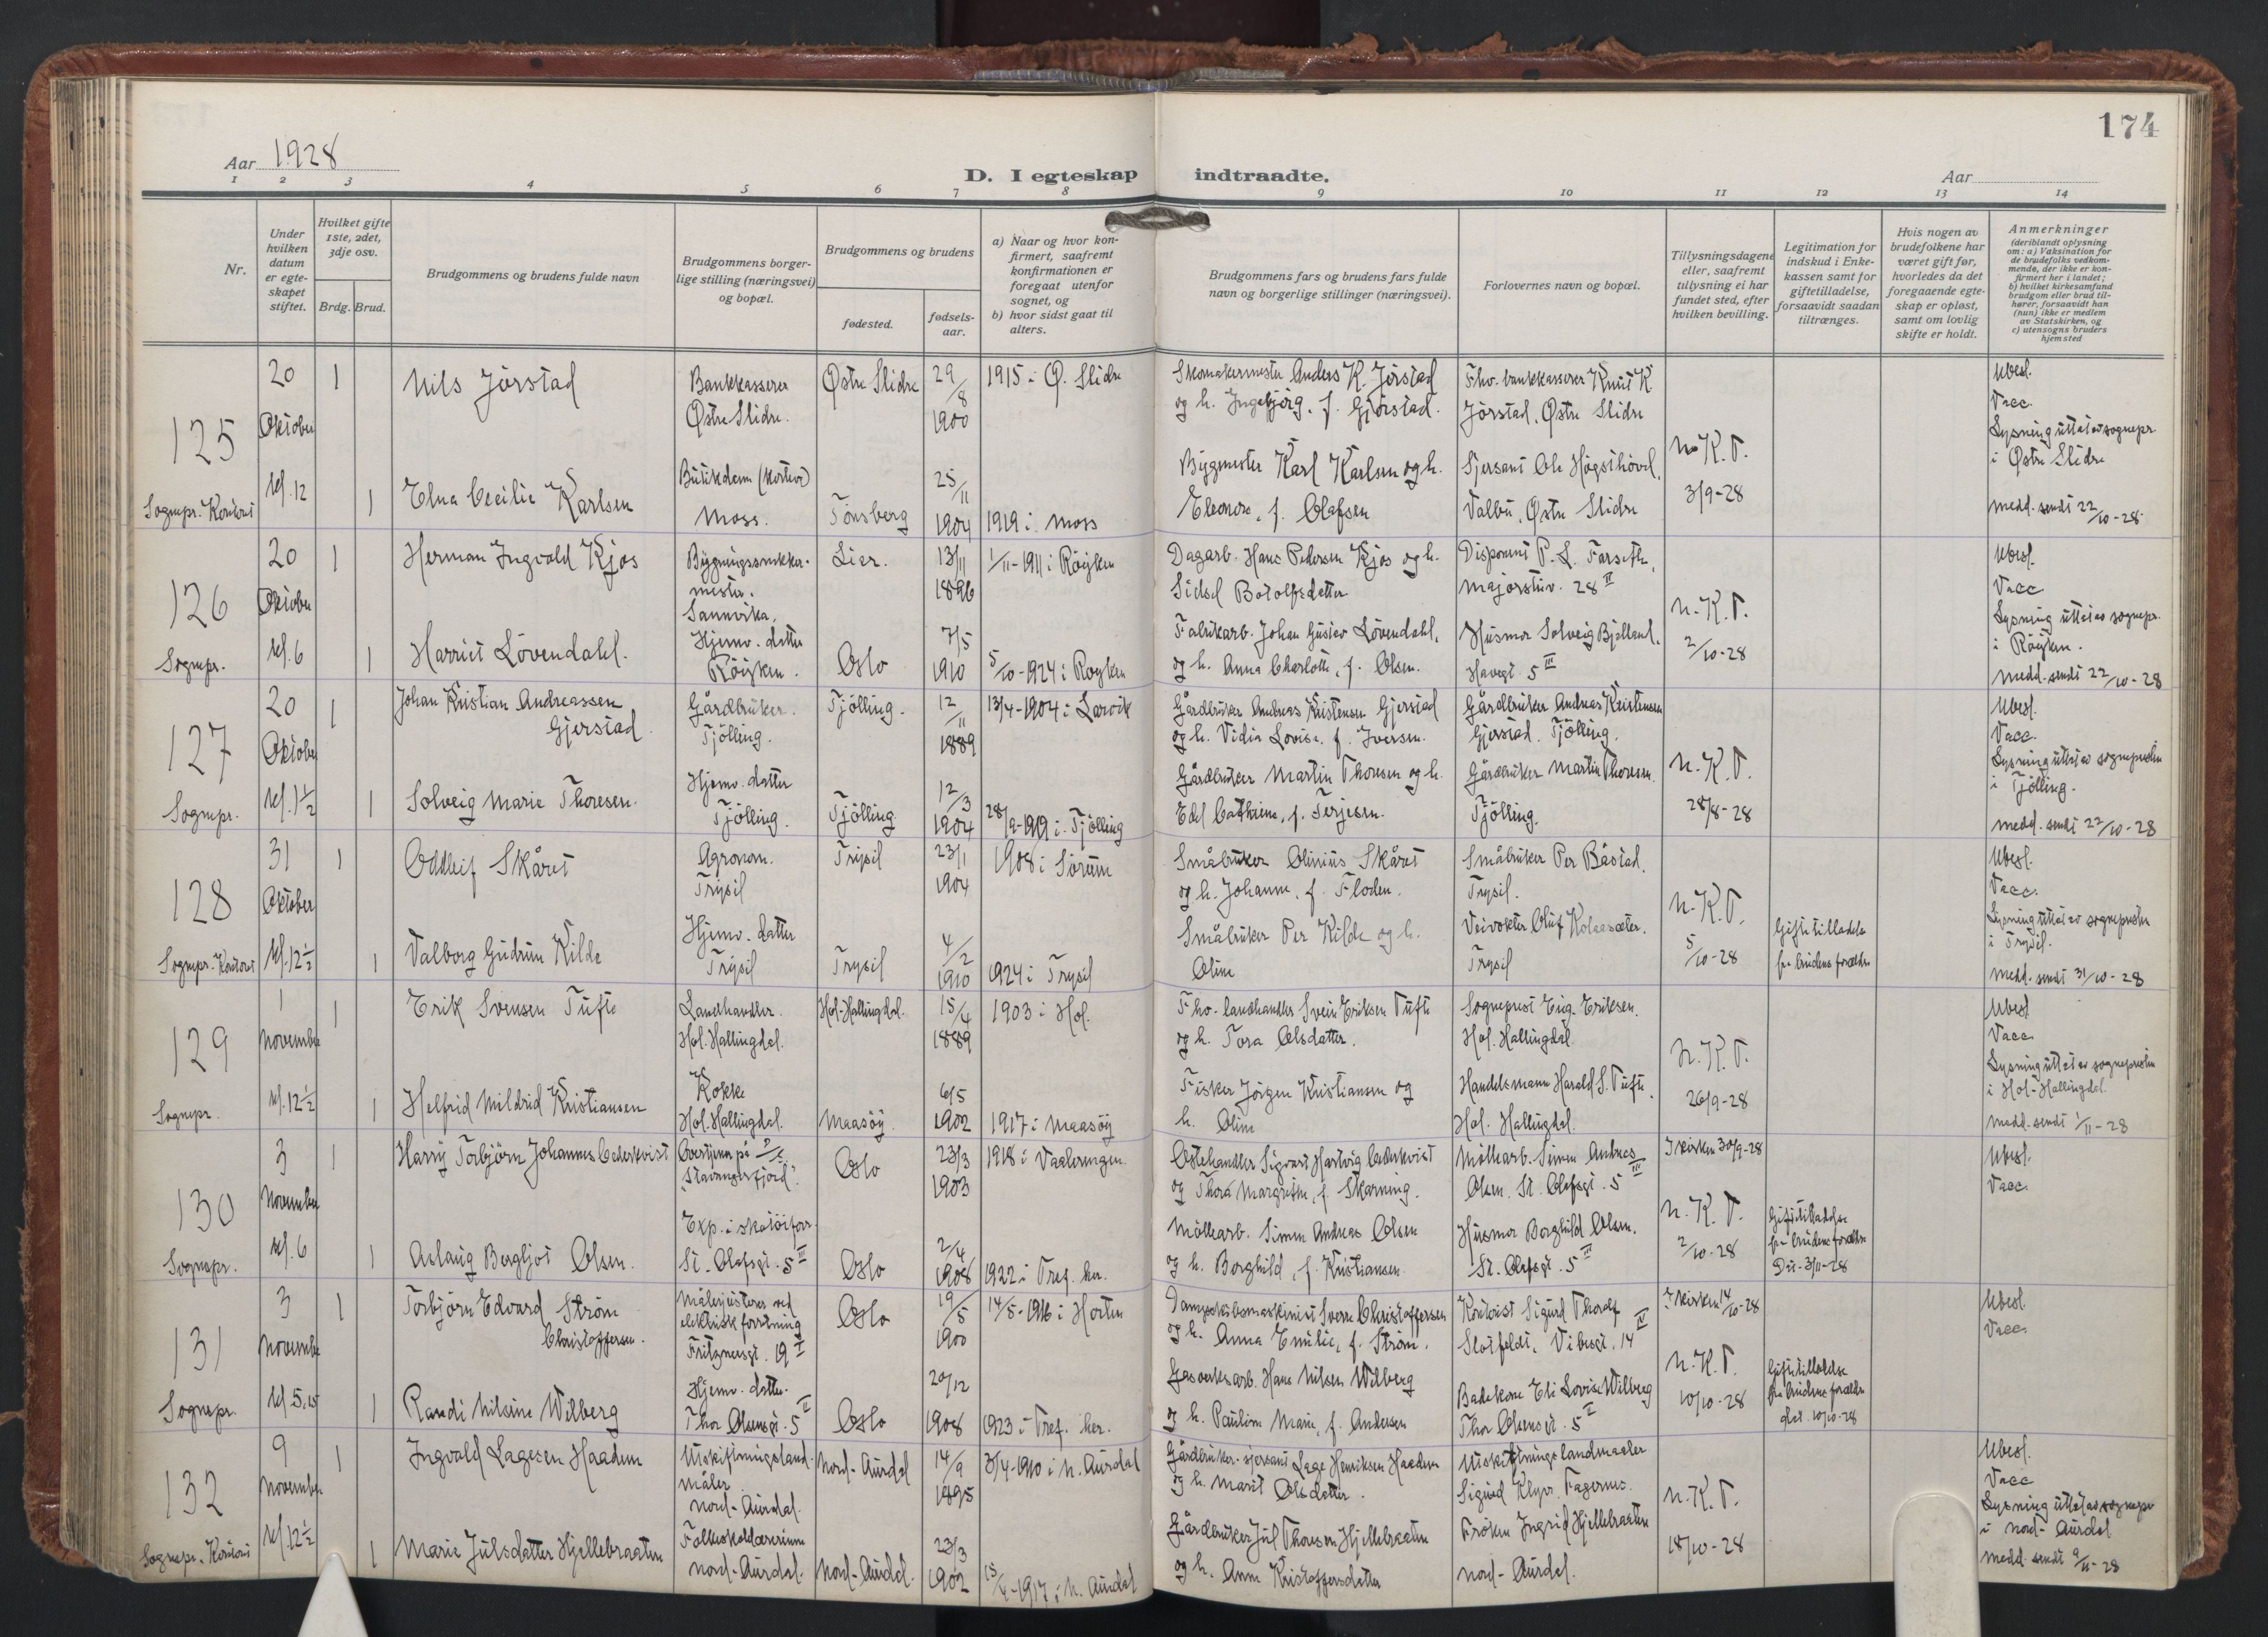 174
Aar 1928
D. I egteskap indtraadte.
Aar
1 2 3 4 5 6 7 8 9 10 11 12 13 14
Nr.
Under hvilken datum er egteskapet stiftet.
Hvilket gifte 1ste, 2det, 3dje osv.
Brdg. Brud.
Brudgommens og brudens fulde navn
Brudgommens borgerlige stilling (næringsvei) og bopæl.
Brudgommens og brudens
fødested.
fødsels-aar.
a) Naar og hvor konfirmert, saafremt konfirmationen er foregaat utenfor sognet, og
b) hvor sidst gaat til alters.
Brudgommens fars og brudens fars fulde navn og borgerlige stillinger (næringsvei).
Forlovernes navn og bopæl.
Tillysningsdagene eller, saafremt tillysning ei har fundet sted, efter hvilken bevilling.
Legitimation for indskud i Enkekassen samt for giftetilladelse, forsaavidt saadan tiltrænges.
Hvis nogen av brudefolkene har været gift før, hvorledes da det foregaaende egteskap er opløst, samt om lovlig skifte er holdt.
Anmerkninger
(deriblandt oplysning om: a) Vaksination for de brudefolks vedkommende, der ikke er konfirmert her i landet; b) hvilket kirkesamfund brudgom eller brud tilhører, forsaavidt han (hun) ikke er medlem av Statskirken, og c) utensogns bruders hjemsted
125
Sognepr. Kontort
20 Oktober kl. 12
1
Nils Jörstad
Bankkasserer
Østre Slidre.
Østre Slidre
29/8 1900
1915 i Ø. Slidre
Skomakermester Anders K. Jörstad
og h. Ingebjörg, f. Gjörstad.
Fhv. bankkasserer Knut K.
Jörstad, Østre Slidre
Ubesl.
Vacc.
Lysning uttat av sognepr.
i Østre Slidre
1
Elna Cecilie Karlsen
Moss.
Tönsberg
25/11 1904
1919 i Moss
Bygmester Karl Karlsen og h.
Eleonore, f. Olafsen
Sjersant Ole Högsthövd,
Valbu, Østre Slidre
N. K. T.
3/9-28
Medd. sendt 22/10-28
126
Sognepr.
20 Oktober kl. 6
1
Herman Ingvald Kjos
Bygningssnekker-
mester.
Sannvika.
Lier.
13/11 1896
1/11-1911 i Röyken
Dagarb. Hans Pedersen Kjos og h.
Sidsel Botolfsdatter
Disponent P. L. Farseth,
Majorstuv. 28 II
Ubesl.
Vacc
Lysning uttat av sognepr.
i Röyken.
1
Harriet Lövendahl.
Hjemv. datter
Röyken.
Oslo
7/5 1910
5/10-1924 i Royken
Fabrikarb. Johan Gustav Lövendahl,
og h. Anna Charlotte, f. Olsen.
Husmor Solveig Bjelland.
Havegt. 5 III
N. K. T.
2/10-28
Medd. sendt 22/10-28
127
Sognepr.
20 Oktober kl. 1 1/2
1
Johan Kristian Andreassen
Gjerstad.
Gårdbruker.
Tjölling.
Tjölling.
12/11 1889
13/4-1904 i Larvik
Gårdbruker Andreas Kristensen Gjerstad
og h. Vidia Lovise, f. Iversen.
Gårdbruker Andreas Kristensen
Gjerstad. Tjölling.
Ubesl.
Vacc.
Lysning uttat av sognepresten
i Tjölling.
1
Solveig Marie Thoresen.
Hjemv. datter
Tjölling.
Tjölling
12/3 1904
28/9-1919 i Tjölling
Gårdbruker Martin Thoresen og h.
Edel Cathrine, f. Terjesen.
Gårdbruker Martin Thoresen.
Tjölling.
N. K. T.
28/8-28
Medd. sendt 22/10-28
128
Sognepr. Kontoret
31 Oktober kl. 12 1/2
1
Oddleif Skåret
Agronom.
Trysil
Trysil
23/1 1904
1908 i Sörum
Småbruker Olinius Skåret
og h. Johanne, f. Floden.
Småbruker Per Båstad.
Trysil.
Ubesl.
Vacc.
Lysning uttat av sognepresten
i Trysil.
1
Valborg Gudrun Kilde
Hjemv. datter
Trysil
Trysil
4/2 1910
1924 i Trysil
Småbruker Per Kilde og h.
Oline
Veivokter Oluf Kolaasæter.
Trysil
N. K. T.
5/10-28
Giftetilladelse
fra brudens forældre
Medd. sendt 31/10-28
129
Sognepr.
1 November kl. 12 1/2
1
Erik Svensen Tufte
Landhandler.
Hol. Hallingdal.
Hol-Hallingdal.
15/4 1889
1903 i Hol.
Fhv. landhandler Svein Eriksen Tufte
og h. Tora Olsdatter.
Sogneprest Eug. Eriksen.
Hol. Hallingdal.
Ubesl
Vacc.
Lysning uttat av sognepresten
i Hol-Hallingdal.
1
Helfrid Mildrid Kristiansen
Kokke
Hol. Hallingdal.
Maasöy.
6/5 1902
1917 i Maasöy
Fisker Jörgen Kristiansen og
h. Oline
Handelsmann Harald S. Tufte.
Hol. Hallingdal.
N. K. T.
26/9-28
Medd. sendt 1/11-28
130
Sognepr.
3 November kl. 6
1
Harry Torbjörn Johannes Cederkvist
Overtjener på D/S
"Stavangerfjord".
Oslo
23/3 1903
1918 i Vaalerengen.
Ostehandler Sigvart Hartvig Cederkvist
og Thora Margrethe, f. Skarning.
Möllearb. Simen Andreas
Olsen, St. Olafsgt. 5 III
I kirken 30/9-28
Ubesl.
Vacc.
1
Aslaug Bergljot Olsen.
Exp. i skotöiforr.
St. Olafsgt. 5 III
Oslo
2/4 1908
1922 i Tref. her.
Möllearb. Simen Andreas Olsen
og h. Borghild, f. Kristiansen.
Husmor Borghild Olsen.
St. Olafsgt. 5 III
N. K. T.
2/10-28
Giftetilladelse
fra brudens forældre
Dat. 3/11-28
131
Sognepr.
3 November kl. 5.15
1
Torbjörn Edvard Ström
Christoffersen.
Målerjusterer ved
elektrisk forretning
Fritznersgt. 19 I
Oslo
19/5 1900
14/5-1916 i Horten
Dampskibsmaskinist Sverre Christoffersen
og h. Anna Emilie, f. Ström.
Kontorist Sigurd Thoralf
Slotfeldt, Vibesgt. 14 IV
I kirken 14/10-28
Ubesl.
Vacc.
1
Randi Nilsine Wilberg
Hjemv. datter.
Thor Olsensgt. 5 II
Oslo
20/12 1908
1923 i Tref. her.
Gasverksarb. Hans Nilsen Wilberg
og h. Pauline Marie, f. Andersen
Badekone Eli Lovise Wilberg
Thor Olsensgt. 5 II
N. K. T.
10/10-28
Giftetilladelse
fra brudens forældre
dat. 10/10-28
132
Sognepr. Kontort
9 November kl. 12 1/2
1
Ingvald Lagesen Haadem
Utskiftningsland-
måler
Nord-Aurdal.
Nord-Aurdal
14/9 1895
3/4-1910 i N. Aurdal
Gårdbruker-sjersant Lage Henriksen Haadem
og h. Marit Olsdatter.
Utskiftningslandmaaler
Sigurd Fagernes.
Ubesl.
Vacc
Lysning uttat av sognepr
i Nord-Aurdal
1
Marie Julsdatter Hjellebraaten
Folkeskolelærerinne
Nord-Aurdal.
Nord-Aurdal.
23/3 1902
15/4-1917 i N. Aurdal
Gårdbruker Jul Thoresen Hjellebraaten
og h. Anne Kristoffersdatter
Fröken Ingrid Hjellebraaten
Nord-Aurdal.
N. K. T.
18/10-28
Medd. sendt 9/11-28